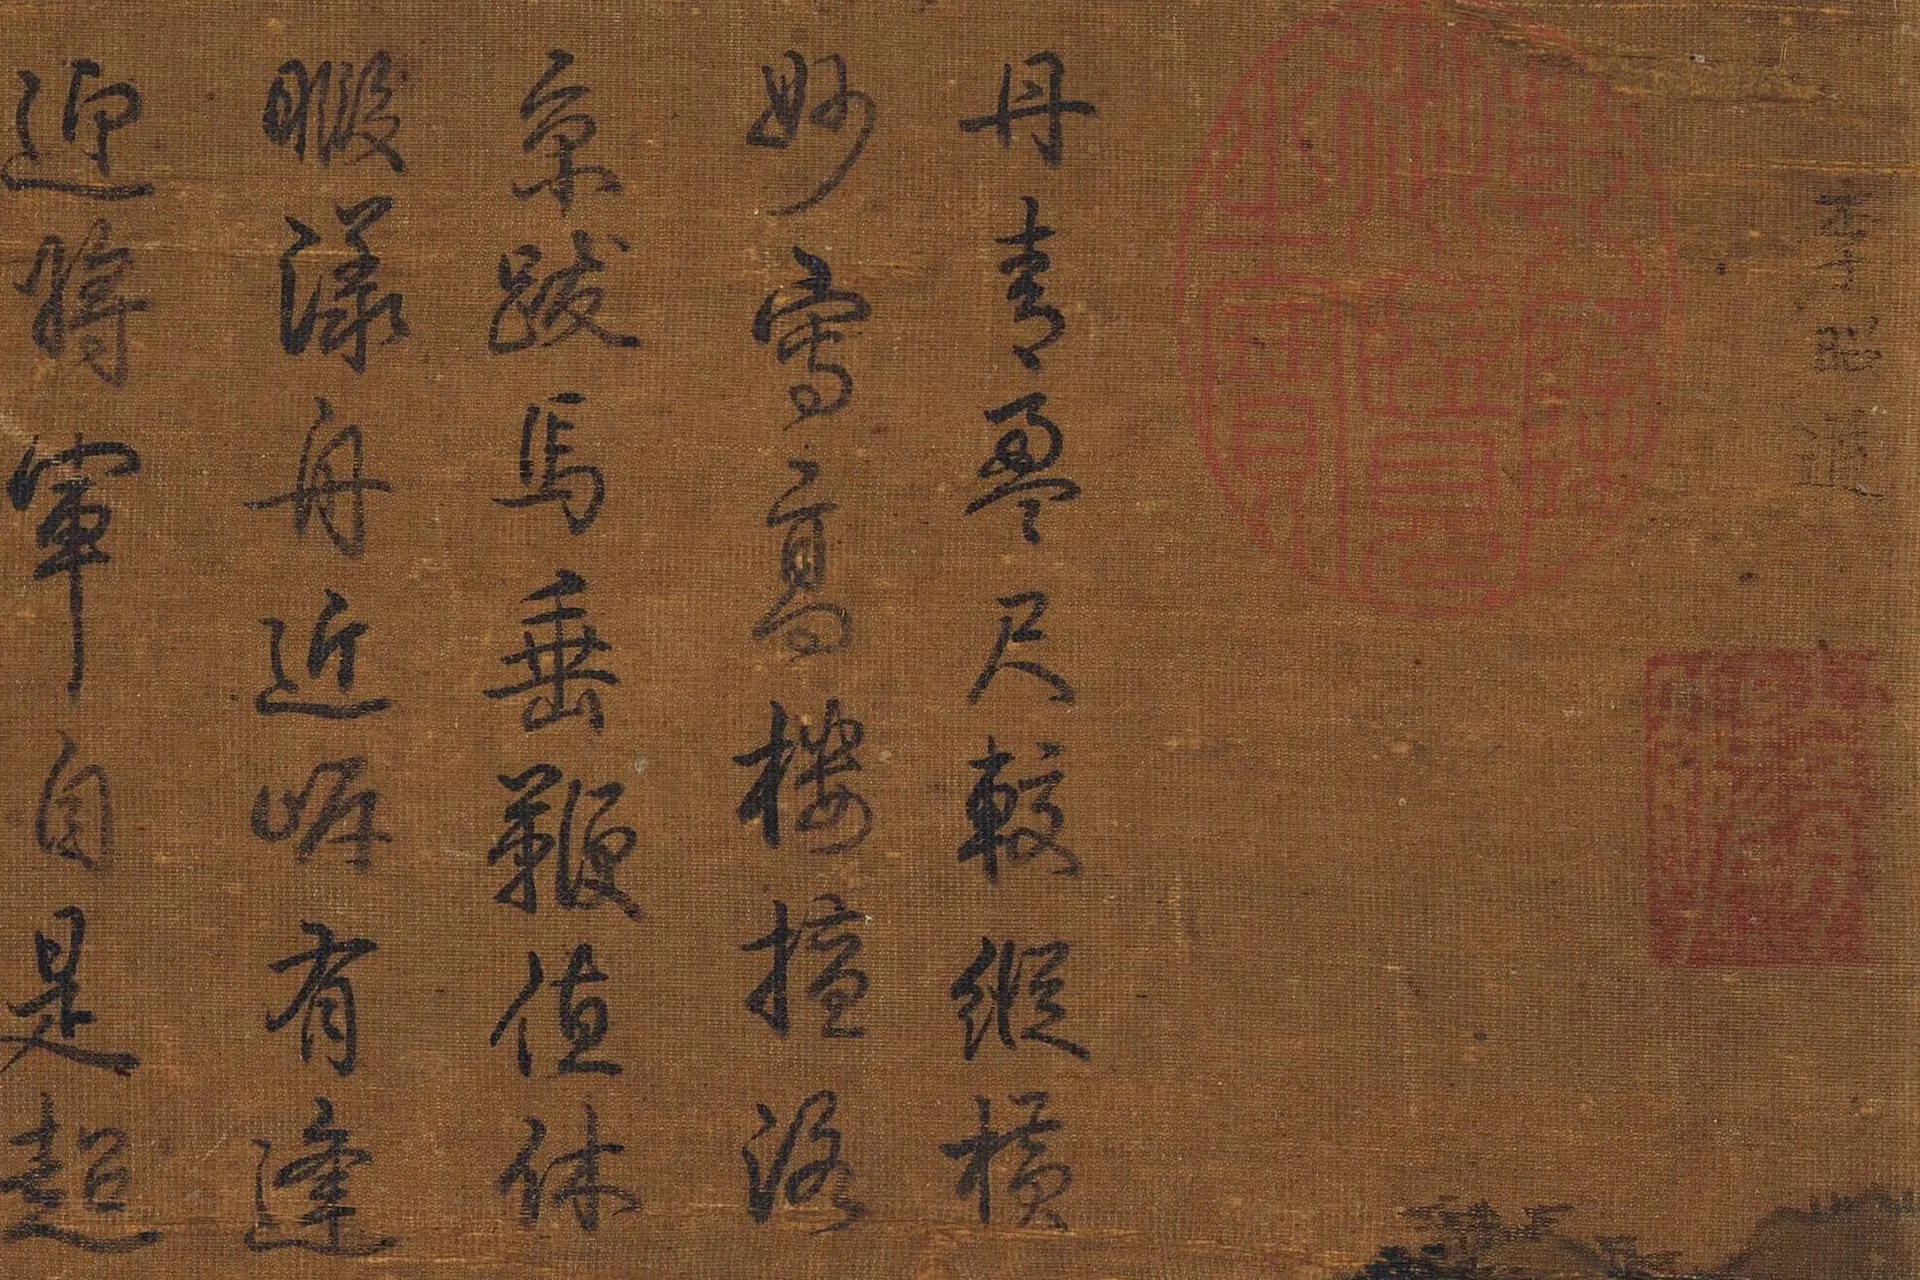 李昭道
丹青盈尺較縱橫
妙寫高樓擅洛
京跋馬垂鞭值休
暇漾舟近岸有逢
迎將軍自是超